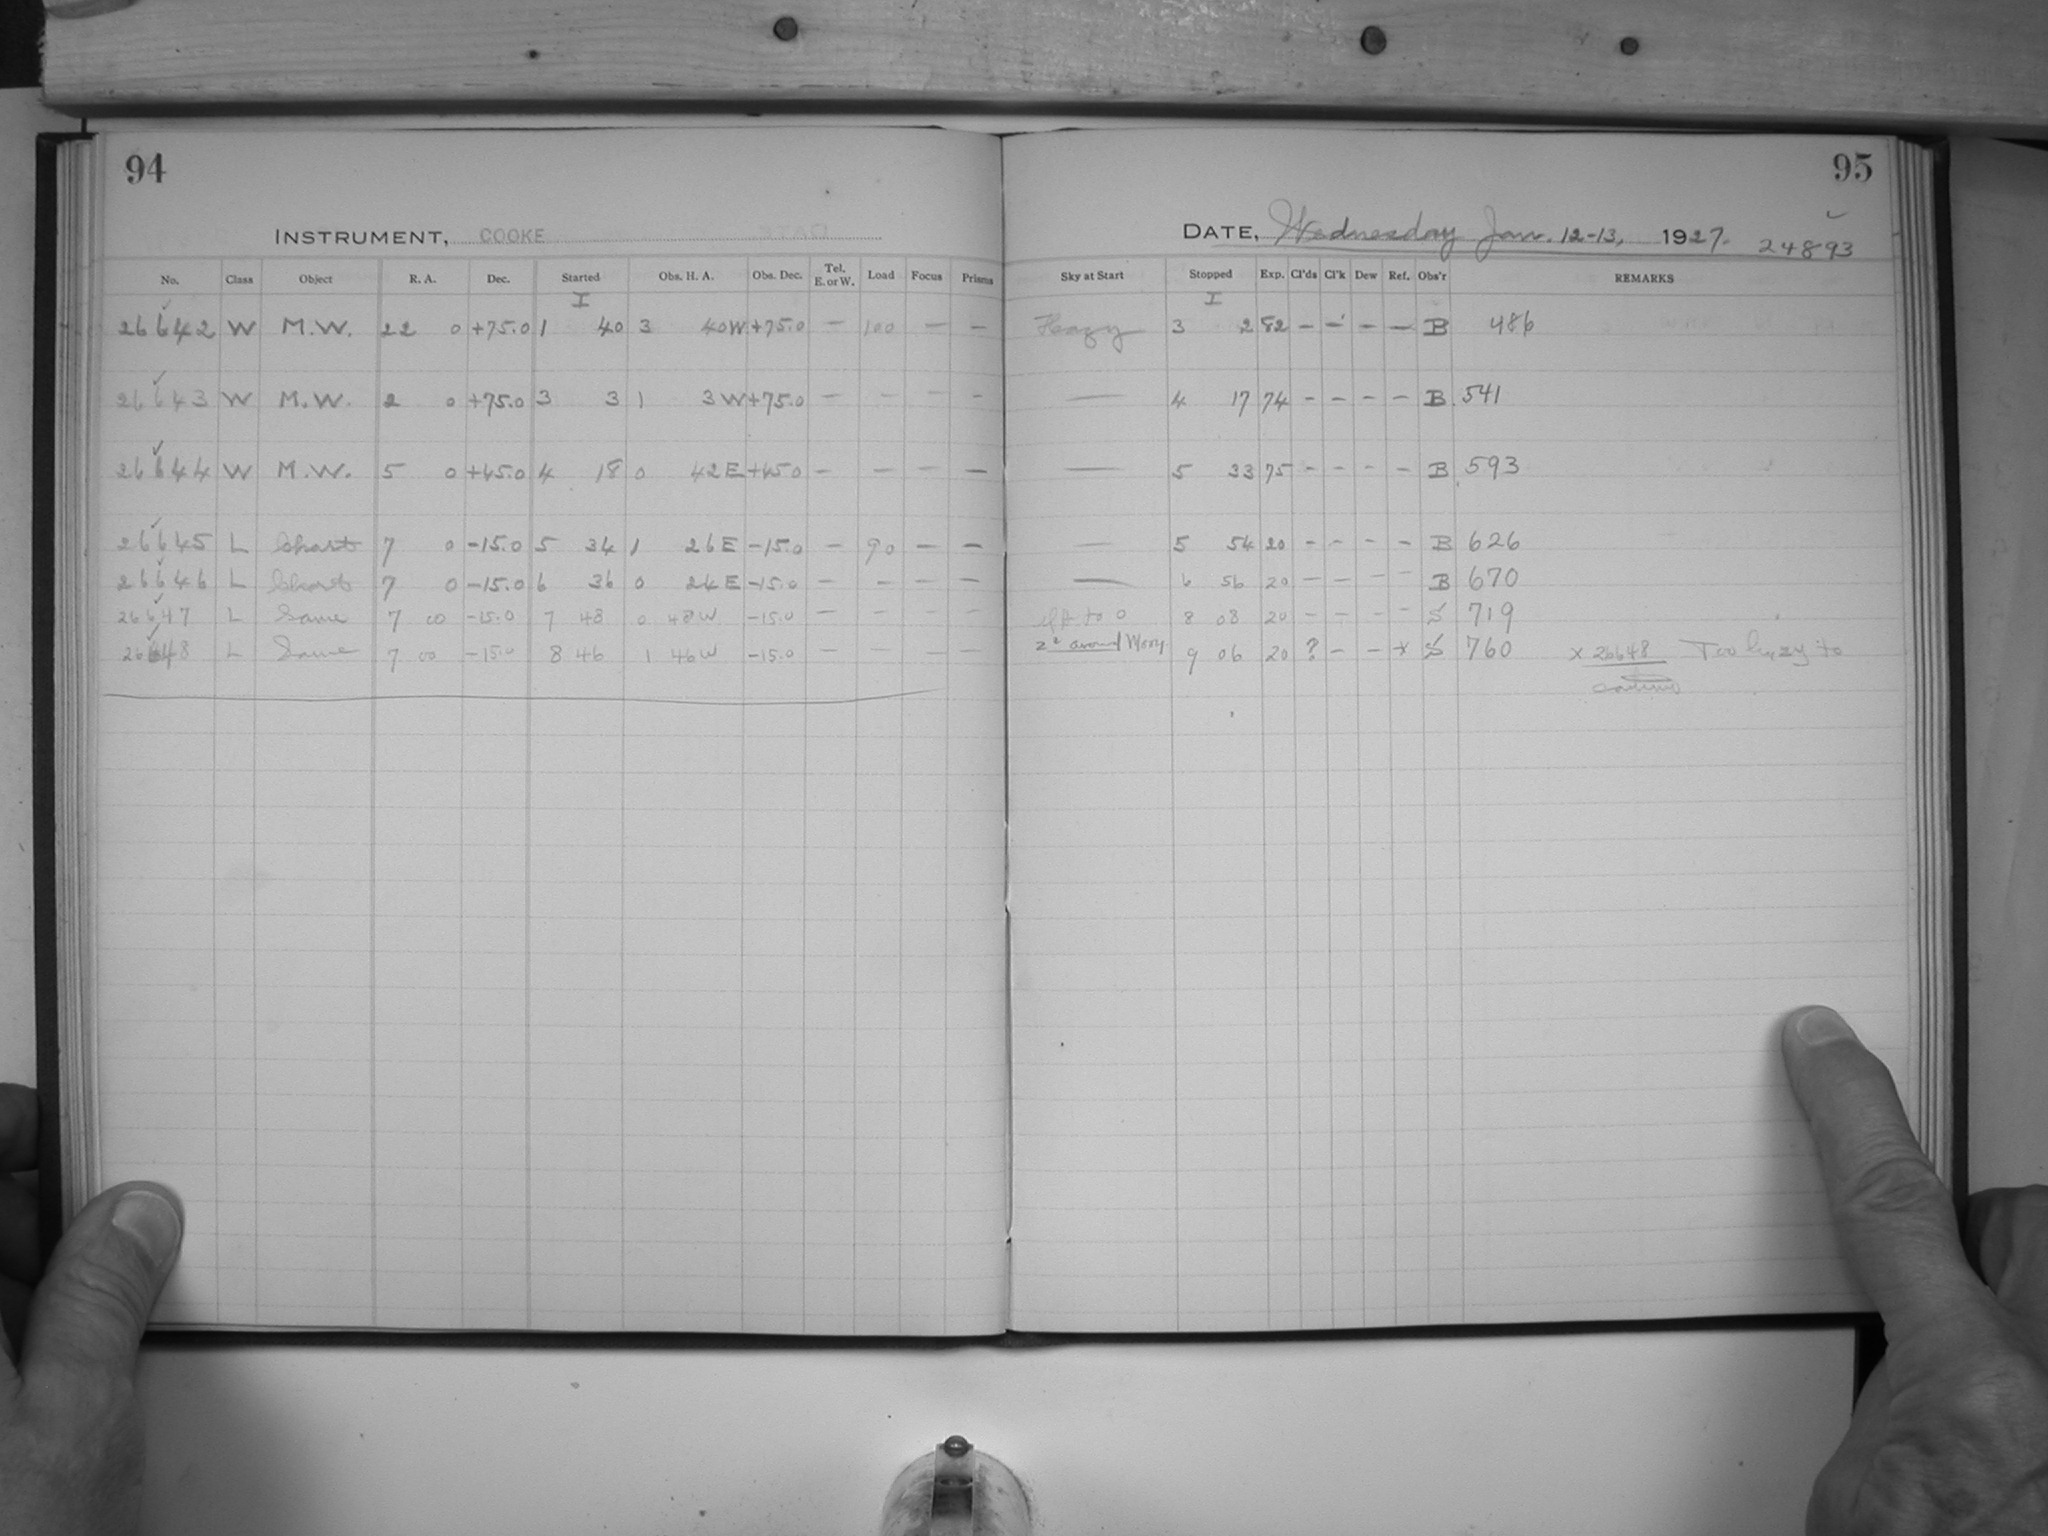 94
INSTRUMENT, COOKE
No. Class Object R. A. Dec. Started Obs. H. A. Obs. Dec. Tel. E. or W. Load Focus Prisms
I
26642 W M.W. 22 0 +75.0 1 40 3 40W +75.0 — 100 — —
26643 W M.W. 2 0 +75.0 3 3 1 3W +75.0 — — — —
26644 W M.W. 5 0 +45.0 4 18 0 42E +45.0 — — — —
26645 L Chart 7 0 -15.0 5 34 1 26E -15.0 — 90 — —
26646 L Chart 7 0 -15.0 6 36 0 24E -15.0 — — — —
26647 L Same 7 00 -15.0 7 48 0 48W -15.0 — — — —
26648 L Same 7 00 -15.0 8 46 1 46W -15.0 — — — —
95
DATE, Wednesday Jan. 12-13, 1927. 24893
Sky at Start Stopped Exp. Cl'ds Cl'k Dew Ref. Obs'r REMARKS
I
Hazy 3 2 82 — — — — B 486
— 4 17 74 — — — — B 541
— 5 33 75 — — — — B 593
— 5 54 20 — — — — B 626
— 6 56 20 — — — — B 670
to 0 8 08 20 — — — — S 719
around 9 06 20 ? — — x S 760 x 26648 Too hazy to
continue